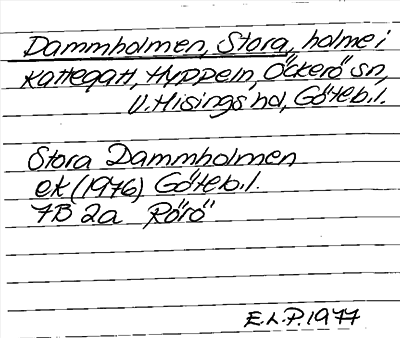 Dammholmen, Stora, holme i
Kattegatt, Hyppeln, Öckerö sn,
V. Hisings hd, Göteb. l.
Stora Dammholmen
ek (1976) Göteb. l.
7B 2a Rörö
E.L.P. 1977